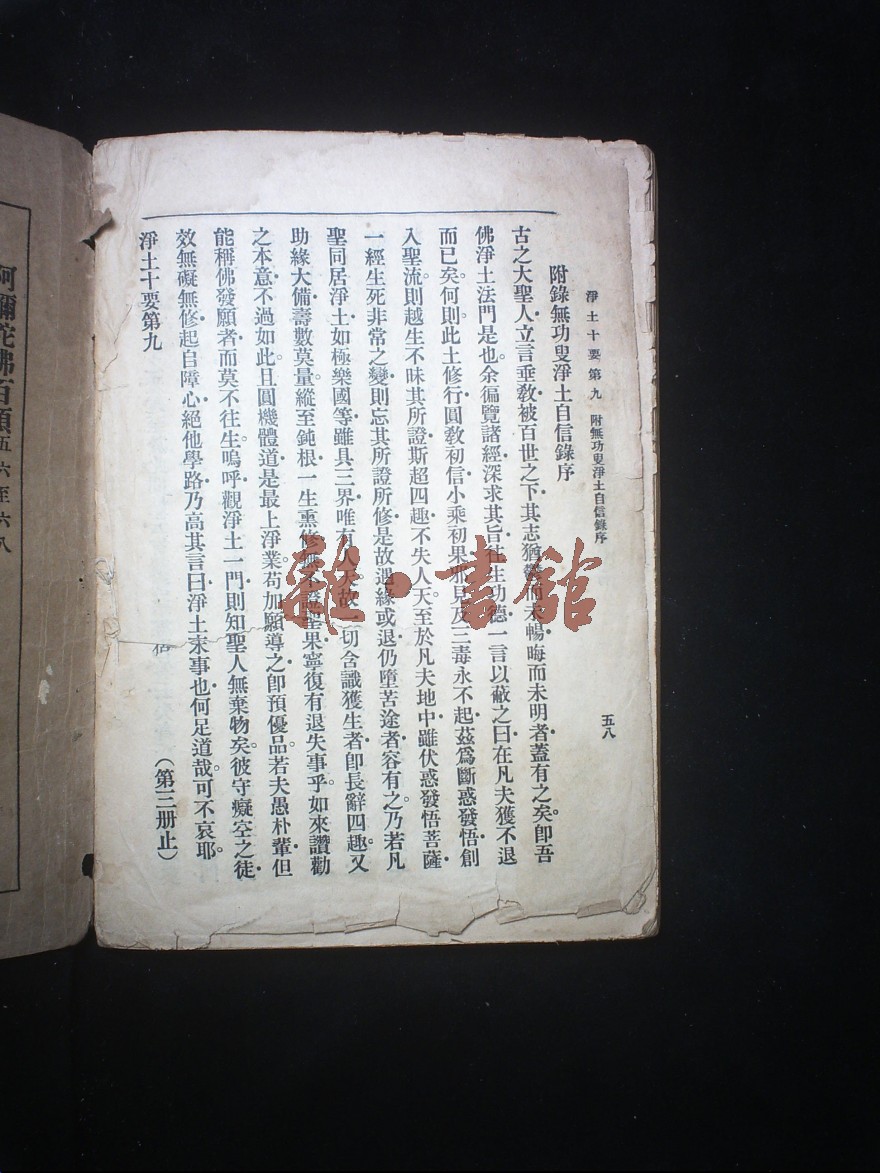 淨土十要第九　附無功叟淨土自信錄序
五八
附錄無功叟淨土自信錄序
古之大聖人立言垂敎被百世之下其志猶鬱而未暢晦而未明者蓋有之矣。卽吾
佛淨土法門是也。余徧覽諸經深求其旨往生功德一言以蔽之曰在凡夫獲不退
而已矣。何則此土修行圓敎初信小乘初果邪見及三毒永不起茲爲斷惑發悟創
入聖流則越生不昧其所證斯超四趣不失人天至於凡夫地中雖伏惑發悟菩薩
一經生死非常之變則忘其所證所修是故遇緣或退仍墮苦途者容有之乃若凡
聖同居淨土如極樂國等雖具三界唯有人天故一切含識獲生者卽長辭四趣。又
助緣大備壽數莫量縱至鈍根一生熏修無不證聖果寧復有退失事乎。如來讚勸
之本意不過如此且圓機體道是最上淨業苟加願導之卽預優品若夫愚朴輩但
能稱佛發願者而莫不往生。嗚呼觀淨土一門則知聖人無棄物矣。彼守癡空之徒
效無礙無修起自障心絕他學路乃高其言曰淨土末事也何足道哉可不哀耶。
淨土十要第九
（第三册止）
阿彌陀佛百頌五六至六八
雜·書館